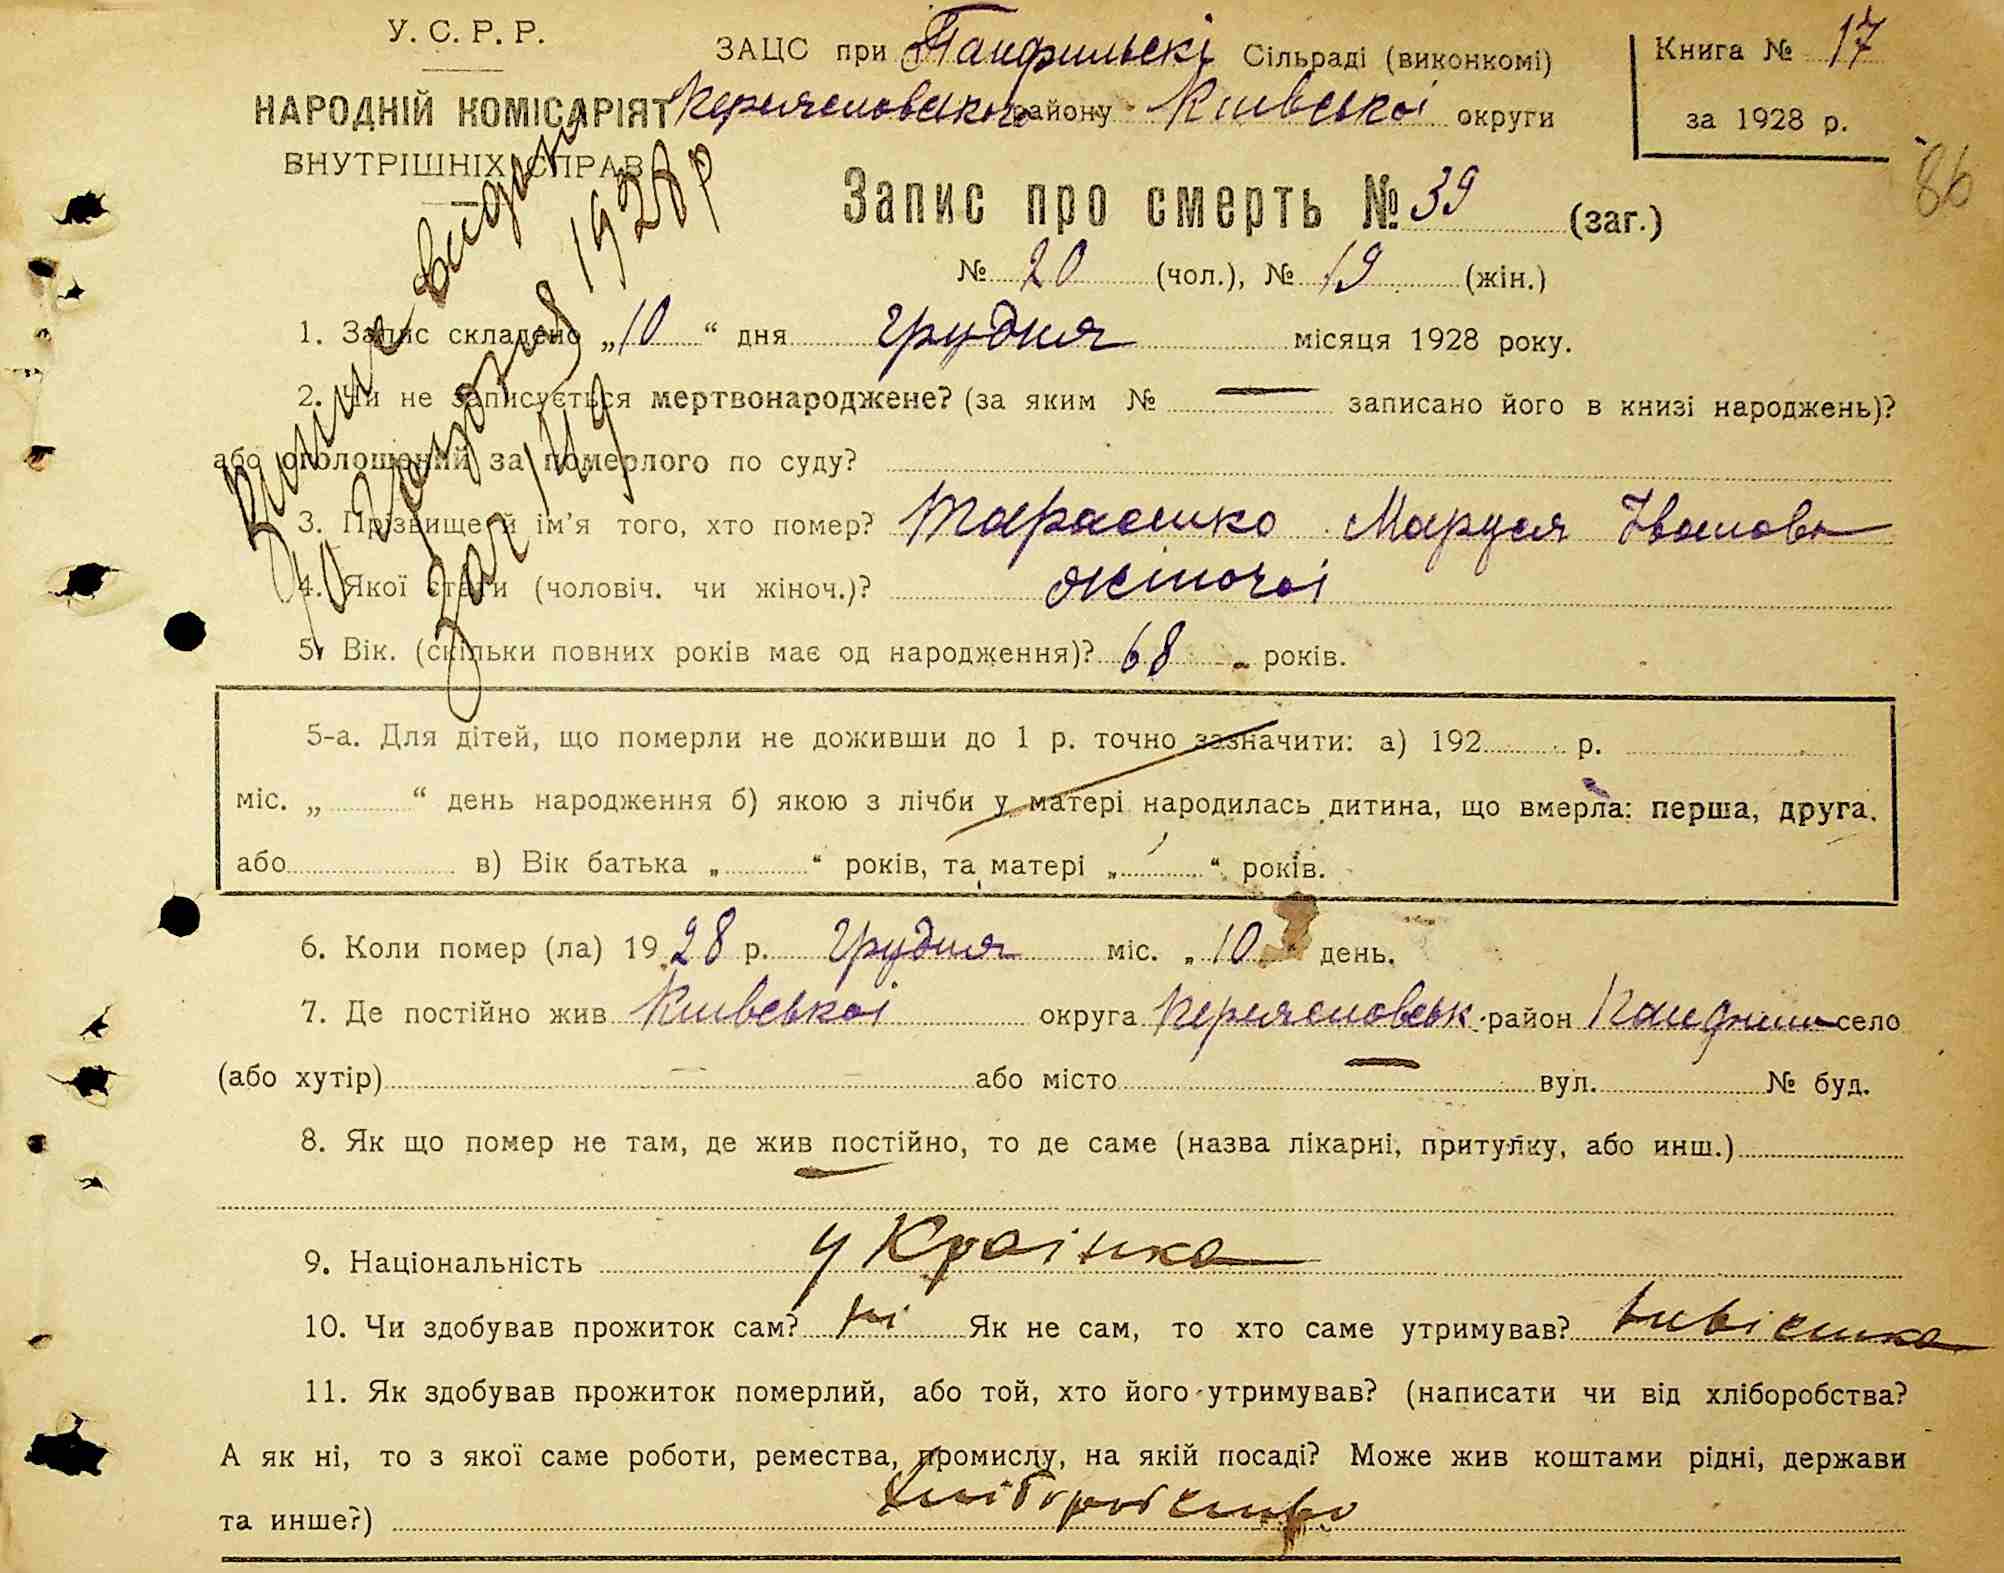 У. С. Р. Р.
НАРОДНІЙ КОМІСАРІЯТ
ВНУТРІШНІХ СПРАВ
ЗАЦС при Панфильскі Сільраді (виконкомі)
Переясловского району Київської округи
Книга № 17
за 1928 р.
86
Запис про смерть № 39 (заг.)
№ 20 (чол.), № 19 (жін.)
Витяг видан
10 грудня 1928 р
1. Запис складено „10“ дня грудня місяця 1928 року.
2. Чи не записується мертвонароджене? (за яким № — записано його в книзі народжень)?
або оголошений за померлого по суду?
3. Прізвище й ім’я того, хто помер? Тарасенко Маруся Іванова
4. Якої стати (чоловіч. чи жіноч.)? жіночої
5. Вік. (скільки повних років має од народження)? 68 „ років.
5-а. Для дітей, що померли не доживши до 1 р. точно зазначити: а) 192 р.
міс. „ “ день народження б) якою з лічби у матері народилась дитина, що вмерла: перша, друга.
або в) Вік батька „ “ років, та матері „ “ років.
6. Коли помер (ла) 1928 р. грудня міс. „10“ день.
7. Де постійно жив Київської округа Переясловськ. район Панфили село
(або хутір) — або місто — вул. № буд.
8. Як що помер не там, де жив постійно, то де саме (назва лікарні, притулку, або инш.)
—
9. Національність українка
10. Чи здобував прожиток сам? ні Як не сам, то хто саме утримував?
11. Як здобував прожиток померлий, або той, хто його утримував? (написати чи від хліборобства?
А як ні, то з якої саме роботи, ремества, промислу, на якій посаді? Може жив коштами рідні, держави
та инше?) хліборобство